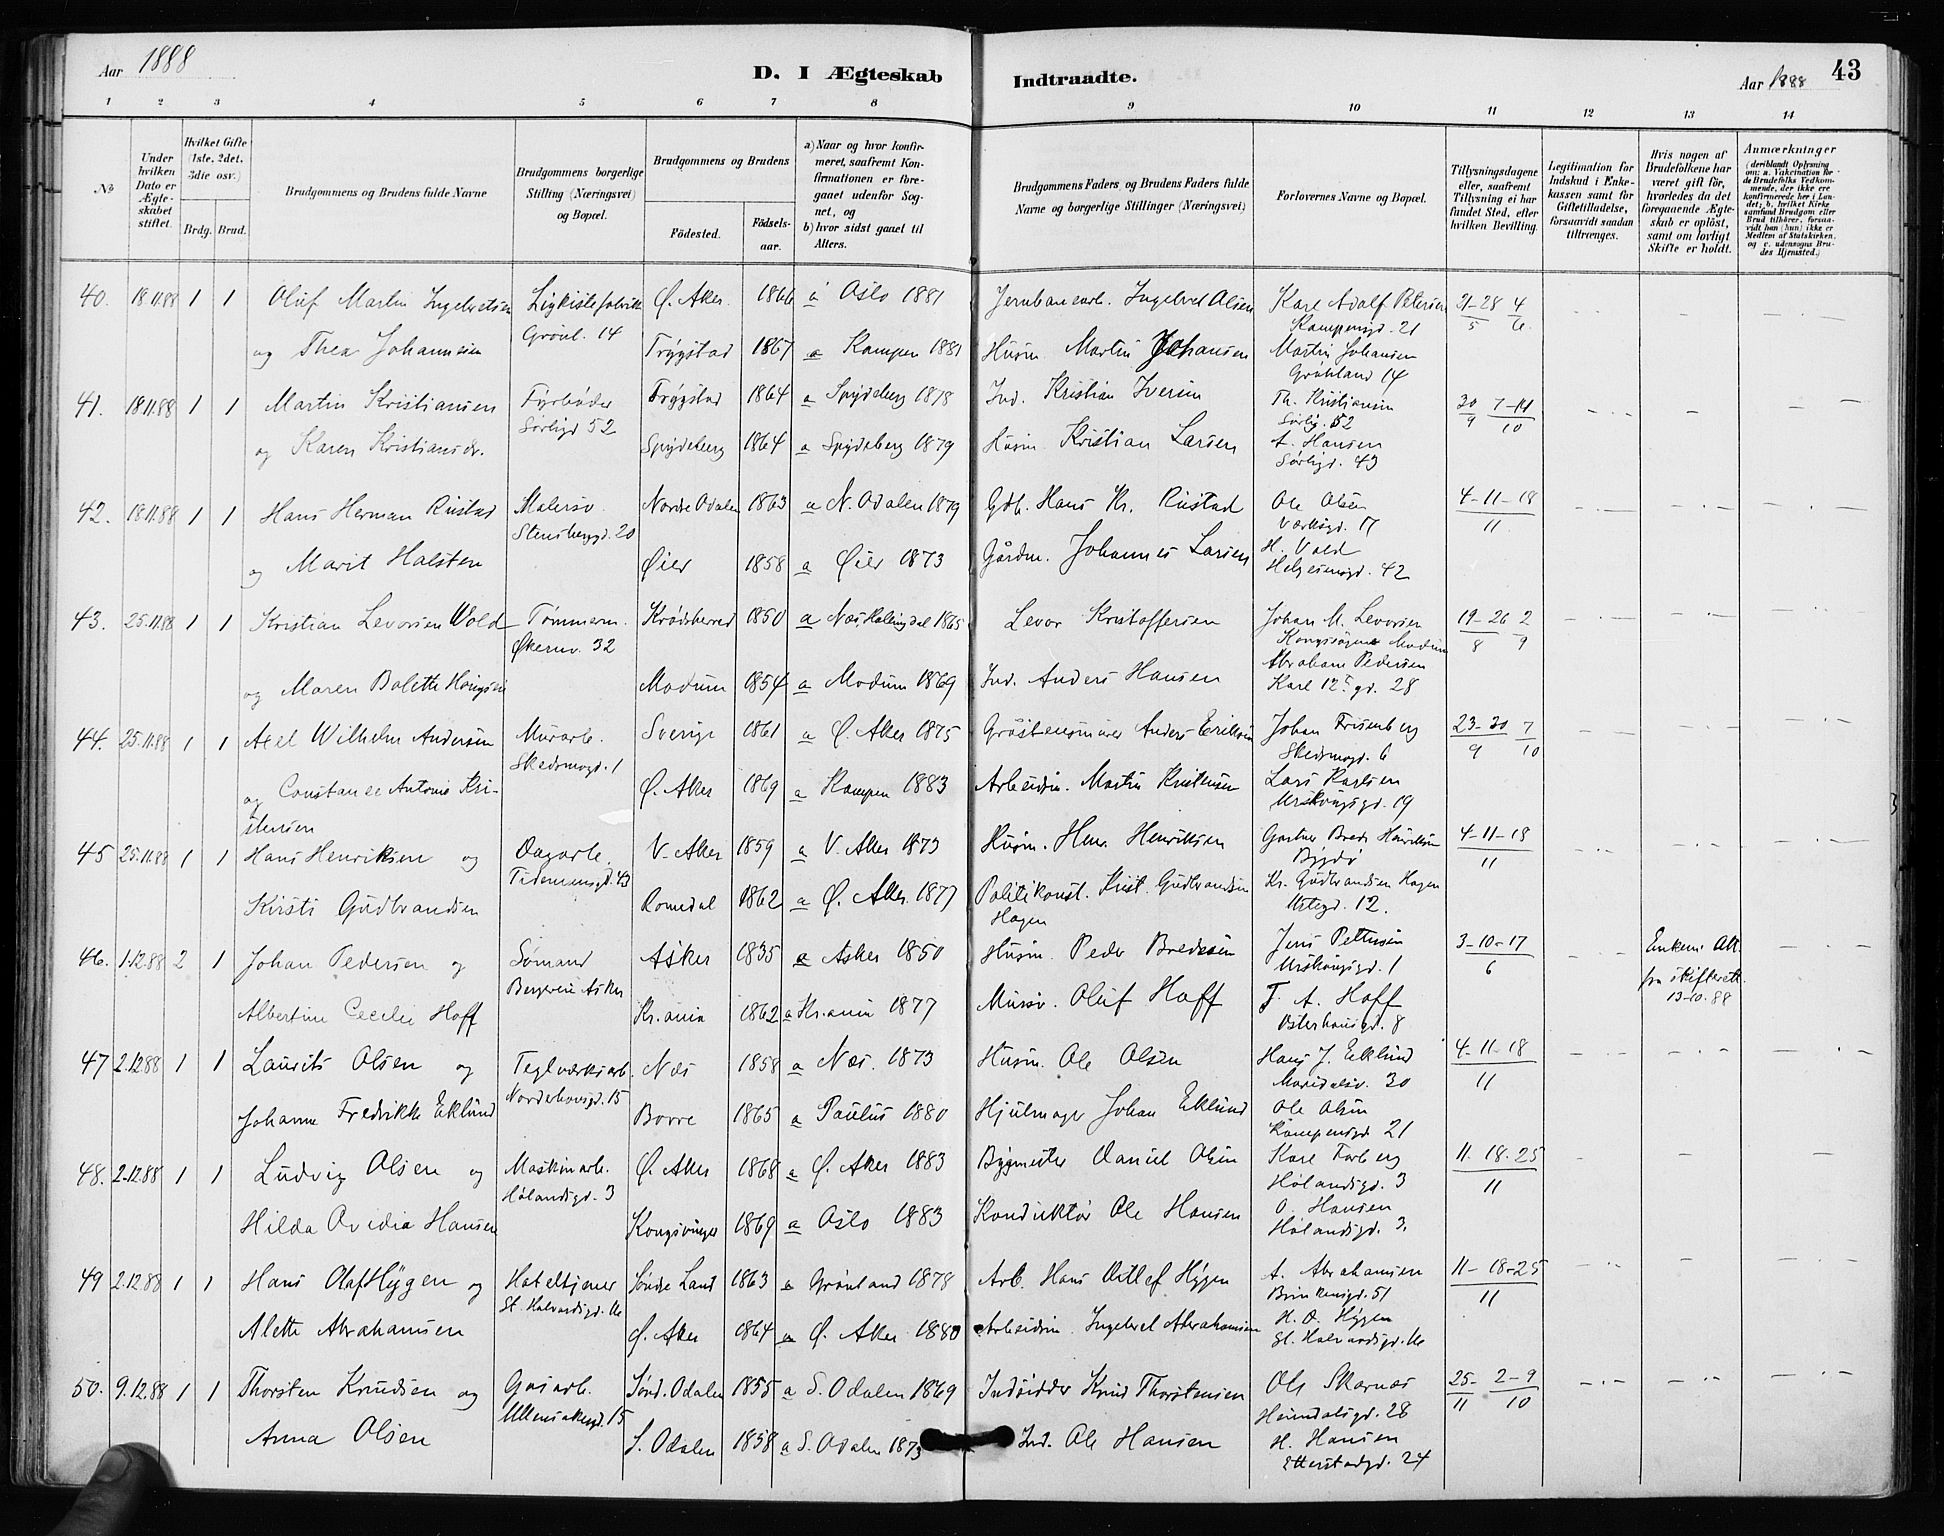 Aar 1888
D. I Ægteskab Indtraadte.
Aar 1888 43
1 2 3 4 5 6 7 8 9 10 11 12 13 14
No
Under hvilken Dato er Ægteskabet stiftet.
Hvilket Gifte (1ste, 2det, 3die osv.)
Brdg. Brud.
Brudgommens og Brudens fulde Navne
Brudgommens borgerlige Stilling (Næringsvei) og Bopæl.
Brudgommens og Brudens
Fødested. Fødselsaar.
a) Naar og hvor konfirmeret, saafremt Konfirmationen er foregaaet udenfor Sognet, og
b) hvor sidst gaaet til Alters.
Brudgommens Faders og Brudens Faders fulde Navne og borgerlige Stillinger (Næringsvei)
Forlovernes Navne og Bopæl.
Tillysningsdagene eller, saafremt Tillysning ei har fundet Sted, efter hvilken Bevilling.
Legitimation for Indskud i Enkekassen samt for Giftetilladelse, forsaavidt saadan tiltrænges.
Hvis nogen af Brudefolkene har været gift før, hvorledes da det foregaaende Ægteskab er opløst, samt om lovligt Skifte er holdt.
Anmærkninger (deriblandt Oplysning om: a. Vakcination for de Brudefolks Vedkommende, der ikke ere konfirmerede her i Landet; b. hvilket Kirkesamfund Brudgom eller Brud tilhører, forsaavidt han (hun) ikke er Medlem af Statskirken, og c. udensogns Brudes Hjemsted.)
40. 18.11.88 1 1 Oluf Martin Ingebretsen Ligkistefabrik Ø. Aker. 1866 a Oslo 1881 Jernbanearb. Ingebret Olsen Karl Adolf Petersen 21-28 4
Grønl. 14 Kampensgd. 21 5 6.
og Thea Johannesen Trygstad 1867 a Kampen 1881 Husm. Martin Johansen Martin Johansen
Grønland 14
41. 18.11.88 1 1 Martin Kristiansen Fyrbøder Trygstad 1864 a Spydeberg 1878 Ind. Kristian Iversen Th. Kristiansen 30 7-14
Sørligd 52 Sørlig. 52 9 10
og Karen Kristiansdr. Spydeberg 1864 a Spydeberg 1879 Husm. Kristian Larsen A. Hansen
Sørligd. 43
42. 18.11.88 1 1 Hans Herman Rustad Malersv. Nordre Odalen 1863 a N. Odalen 1879 Gdb. Hans Kr. Rustad Ole Olsen 4-11-18
Stensberggd. 20 Værksgd. 17 11
og Marit Halsten Øier 1858 a Øier 1873 Gårdm. Johannes Larsen H. Vold
Helgesensgd. 42
43. 25.11.88 1 1 Kristian Levorsen Wold Tømmerm. Krødsherred 1850 a Næs Halingdal 1865 Levor Kristoffersen Johan M. Levorsen 19-26 2
Økernv. 32 Modum 8 9
og Maren Bolette Modum 1854 a Modum 1869 Ind. Anders Hansen Abraham Pedersen
Karl 12s gd. 28
44. 25.11.88 1 1 Axel Wilhelm Andersen Murarb. Sverige 1861 a Ø. Aker 1875 Gråstensmurer Anders Eriksen Johan Frisenberg 23-30 7
Skedsmogd. 1 Skedsmogd. 6 9 10
og Constance Antonie Kri- Ø. Aker 1869 a Kampen 1883 Arbeidsm. Martin Kristensen Lars Karlsen
stensen Urskougsgd. 19
45 25.11.88 1 1 Hans Henriksen og Dagarb. V. Aker 1859 a V. Aker 1873 Husm. Henr. Henriksen Gartner Brede Henriksen 4-11-18
Tidemansgd. 43 Bygdø 11
Kirsti Gudbrandsen Romedal 1862 a Ø. Aker. 1877 Politikonst. Krist. Gudbrandsen Kr. Gudbrandsen Hagen
Hagen Urtegd. 12.
46. 1.12.88 2 1 Johan Pedersen og Sømand Asker 1835 a Asker 1850 Husm. Peder Bredesen Jens Pettersen 3-10-17 Enkem. Att.
Asker Urskougsgd. 1 6 fra skifterett.
Albertine Cecilie Hoff Kr.ania 1862 a Kr.ania 1877 Mursv. Oluf Hoff T. A. Hoff 13-10.88
Osterhausgd. 8
47 2.12.88 1 1 Laurits Olsen og Teglværksarb. Næs 1858 a Næs. 1873 Husm. Ole Olsen Hans J. Eklund 4-11-18
Norderhovsgd. 15 Maridalsv. 30 11
Johanne Fredrikke Eklund Borre 1865 a Paulus 1880 Hjulmager Johan Eklund Ole Olsen
Kampensgd 21
48. 2.12.88 1 1 Ludvig Olsen og Maskinarb. Ø. Aker 1868 a Ø. Aker 1883 Bygmester Daniel Olsen Karl Forberg 11-18-25
Hølandsgd. 3 Hølandsgd. 3 11
Hilda Ovidia Hansen Kongsvinger 1869 a Oslo 1883 Konduktør Ole Hansen O. Hansen
Hølandsgd. 3.
49 2.12.88 1 1 Hans Olaf Hygen og Hoteltjener Søndre Land 1863 a Grønland 1878 Arb. Hans Ditlef Hygen A. Abrahamsen 11-18-25
St. Halvardsgd. 16 Brinkensgd. 51 11
Alette Abrahamsen Ø. Aker 1864 a Ø. Aker 1880 Arbeidsm. Ingebret Abrahamsen H. O. Hygen
St. Halvardsgd. 16
50. 9.12.88 1 1 Thorsten Knudsen og Gasarb. Sønd. Odalen 1855 a S. Odalen 1869 Indsidder Knud Thorstensen Ole Skarnæs 25- 2-9
Ullensakergd. 15 Heimdalsgd. 28 11 10
Anna Olsen S. Odalen 1858 a S. Odalen 1873 Ind. Ole Hansen H. Hansen
Etterstadgd. 24